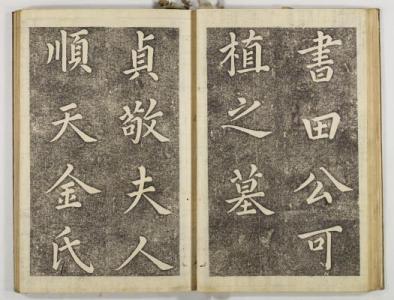 書田公可
植之墓
貞敬夫人
順天金氏